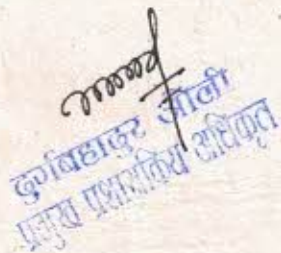 दुर्गबहादुर ओली
प्रमुख प्रशासकिय अधिकृत